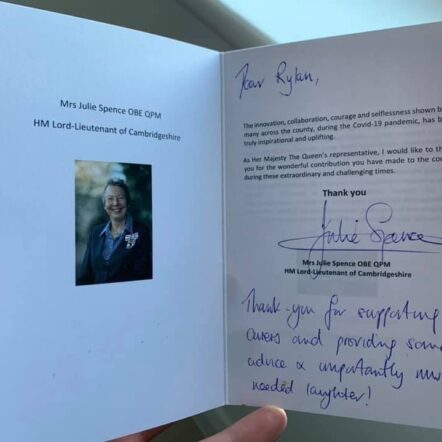 Mrs Julie Spence OBE QPM
HM Lord-Lieutenant of Cambridgeshire
Dear Rylan,
The innovation, collaboration, courage and selflessness shown b
many across the county, during the Covid-19 pandemic, has b
truly inspirational and uplifting.
As Her Majesty The Queen's representative, I would like to th
you for the wonderful contribution you have made to the cou
during these extraordinary and challenging times.
Thank you
Julie Spence
Mrs Julie Spence OBE QPM
HM Lord-Lieutenant of Cambridgeshire
Thank-you for supporting
carers and providing some
advice & importantly mu
needed laughter!